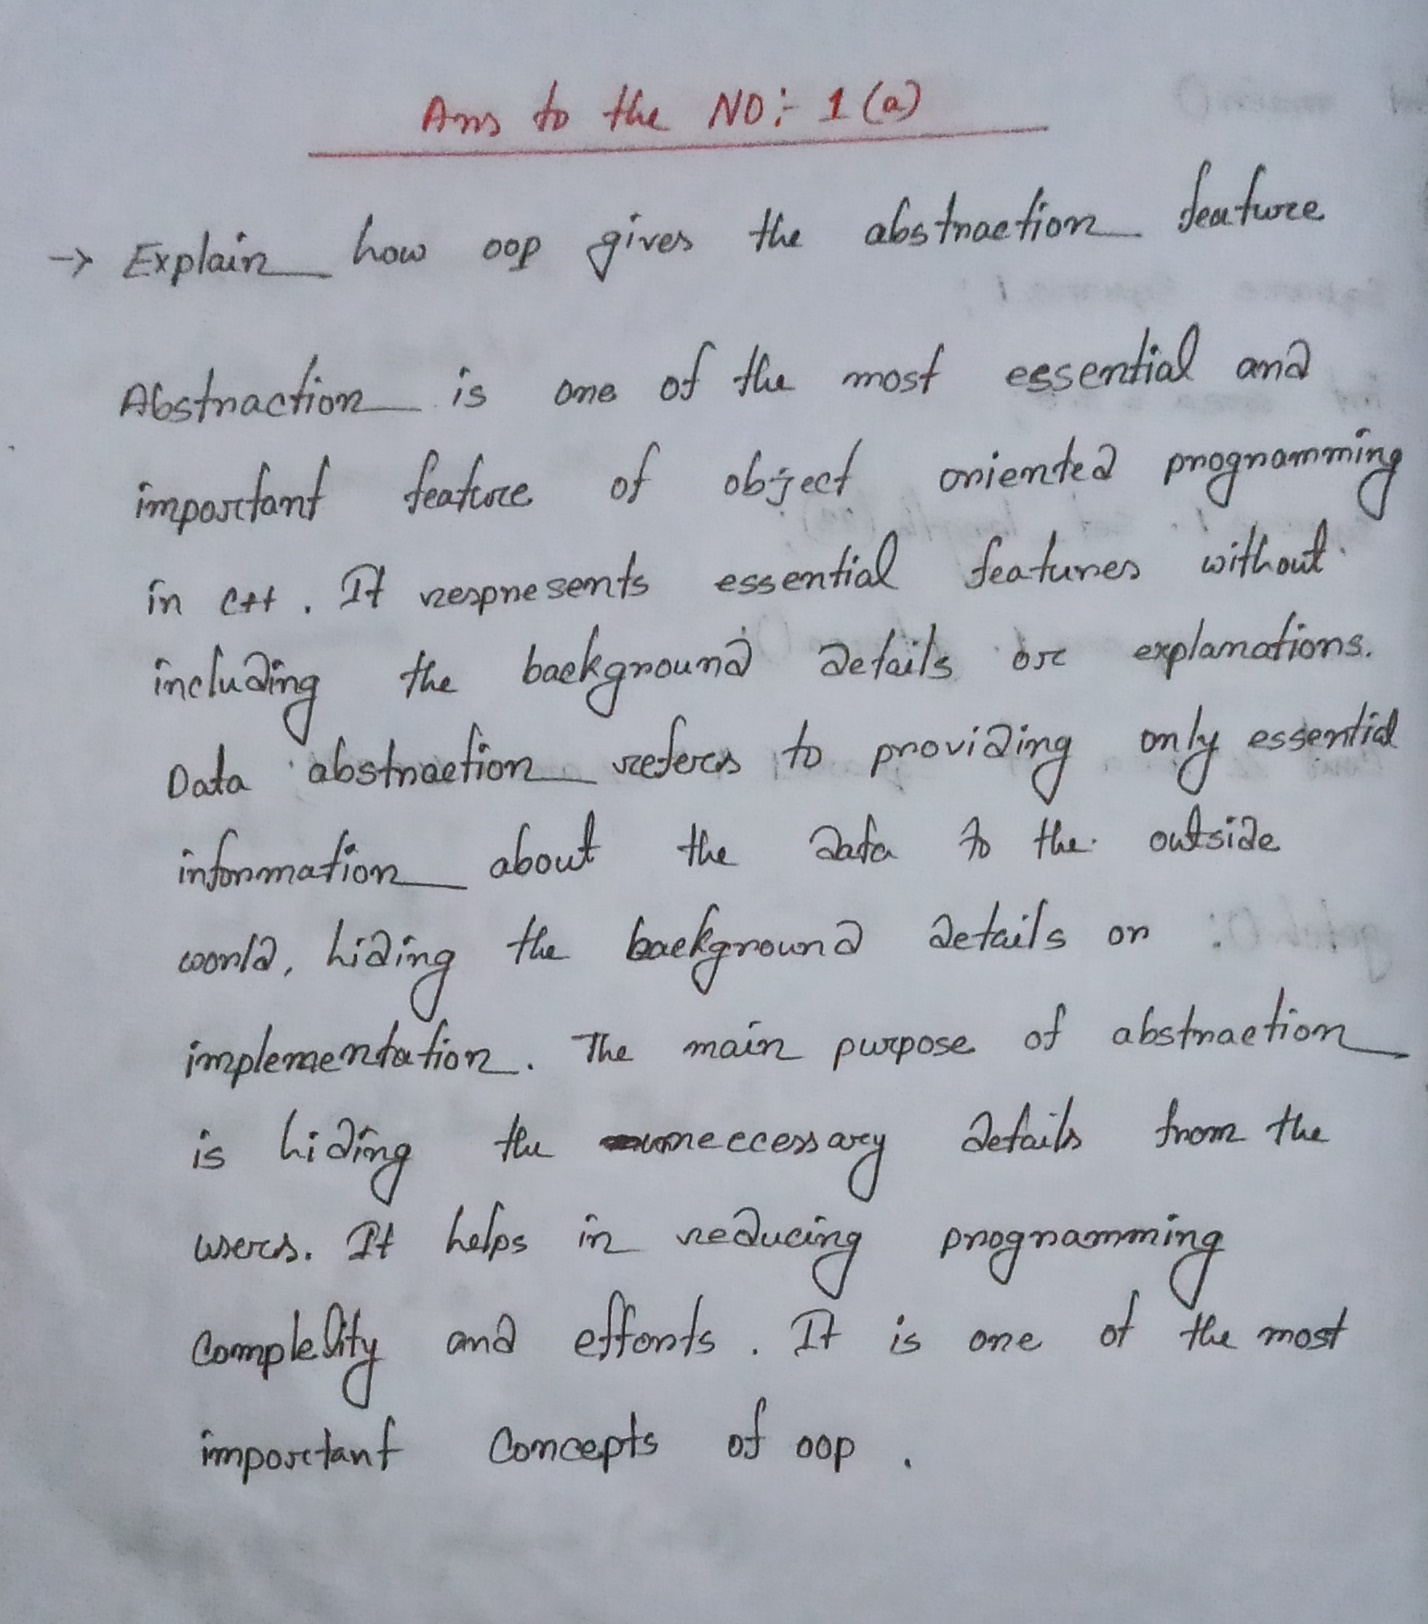 Ans to the NO:- 1 (a)
→ Explain how oop gives the abstraction feature
Abstraction is one of the most essential and
important feature of object oriented programming
in c++. It respresents essential features without
including the background details or explanations.
Data abstraction refers to providing only essential
information about the data to the outside
world, hiding the background details or
implementation. The main purpose of abstraction
is hiding the unneccessary details from the
users. It helps in reducing programming
complelity and efforts. It is one of the most
important concepts of oop.